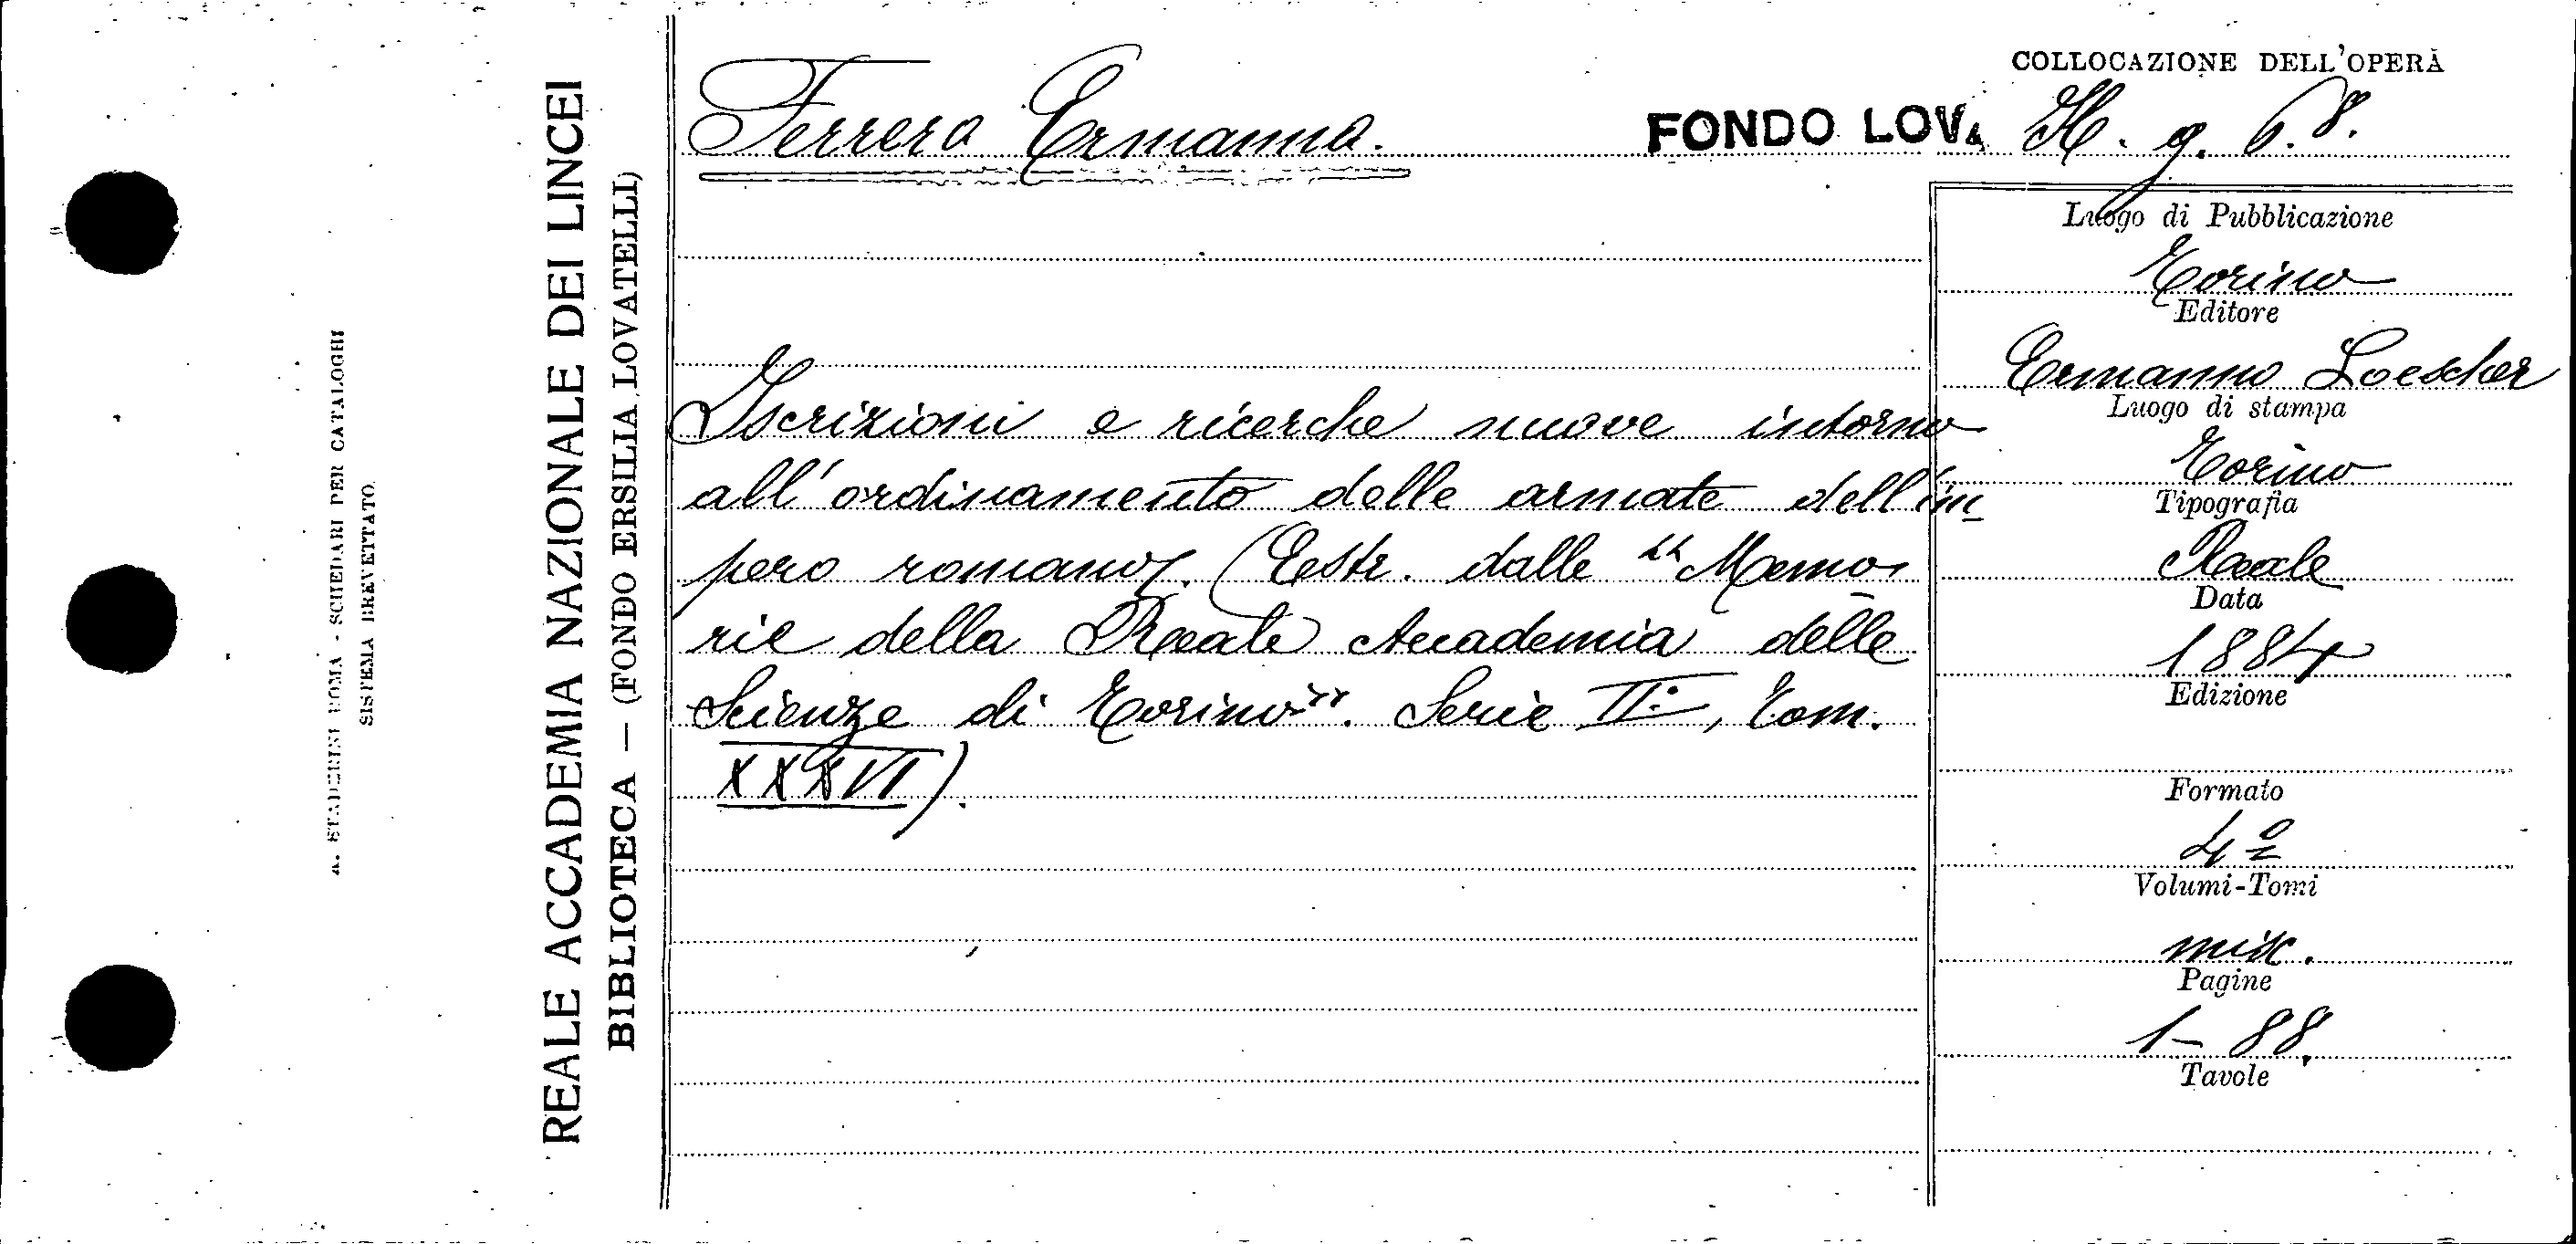 COLLOCAZIONE DELL'OPERA
Ferrero Ermanno.
FONDO LOV. H. g. 6.8.
Iscrizioni e ricerche nuove intorno
all'ordinamento delle armate dell'im
pero romano. (Estr. dalle "Memo-
rie della Reale Accademia delle
Scienze di Torino". Serie II, Tom.
XXXVI).
Luogo di Pubblicazione
Torino
Editore
Ermanno Loescher
Luogo di stampa
Torino
Tipografia
Reale
Data
1884
Edizione
Formato
4º
Volumi-Tomi
misc.
Pagine
1-88.
Tavole
REALE ACCADEMIA NAZIONALE DEI LINCEI
BIBLIOTECA — (FONDO ERSILIA LOVATELLI)
A. STADERINI ROMA - SCHEDARI PER CATALOGHI
SISTEMA BREVETTATO.